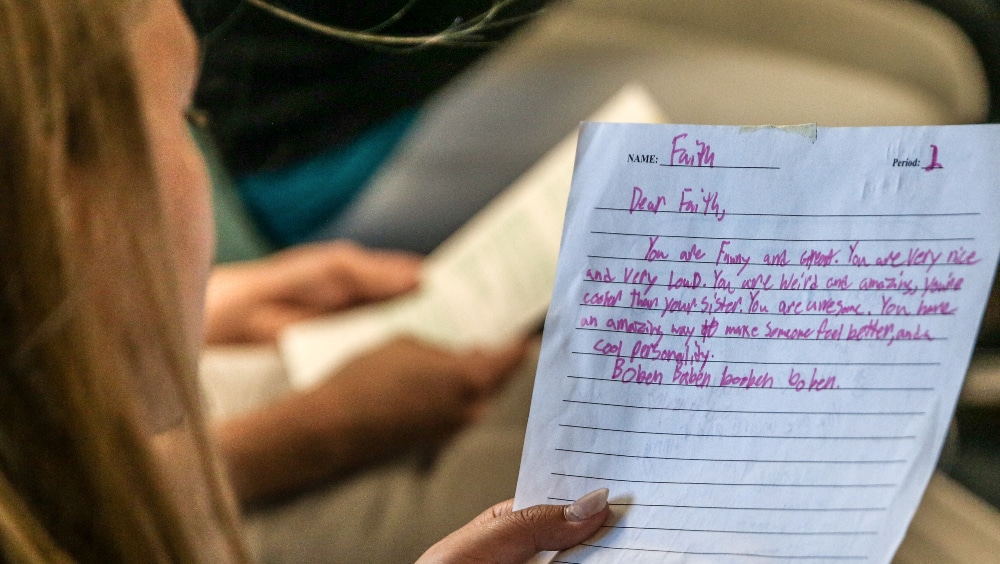 NAME: Faith Period: 1
Dear Faith,
You are Funny and great. You are very nice
and very Loud. You are Weird and amazing, you're
cooler than your sister. You are awesome. You have
an amazing way to make someone feel better, and a
cool personality.
Boben Baben booben boben.